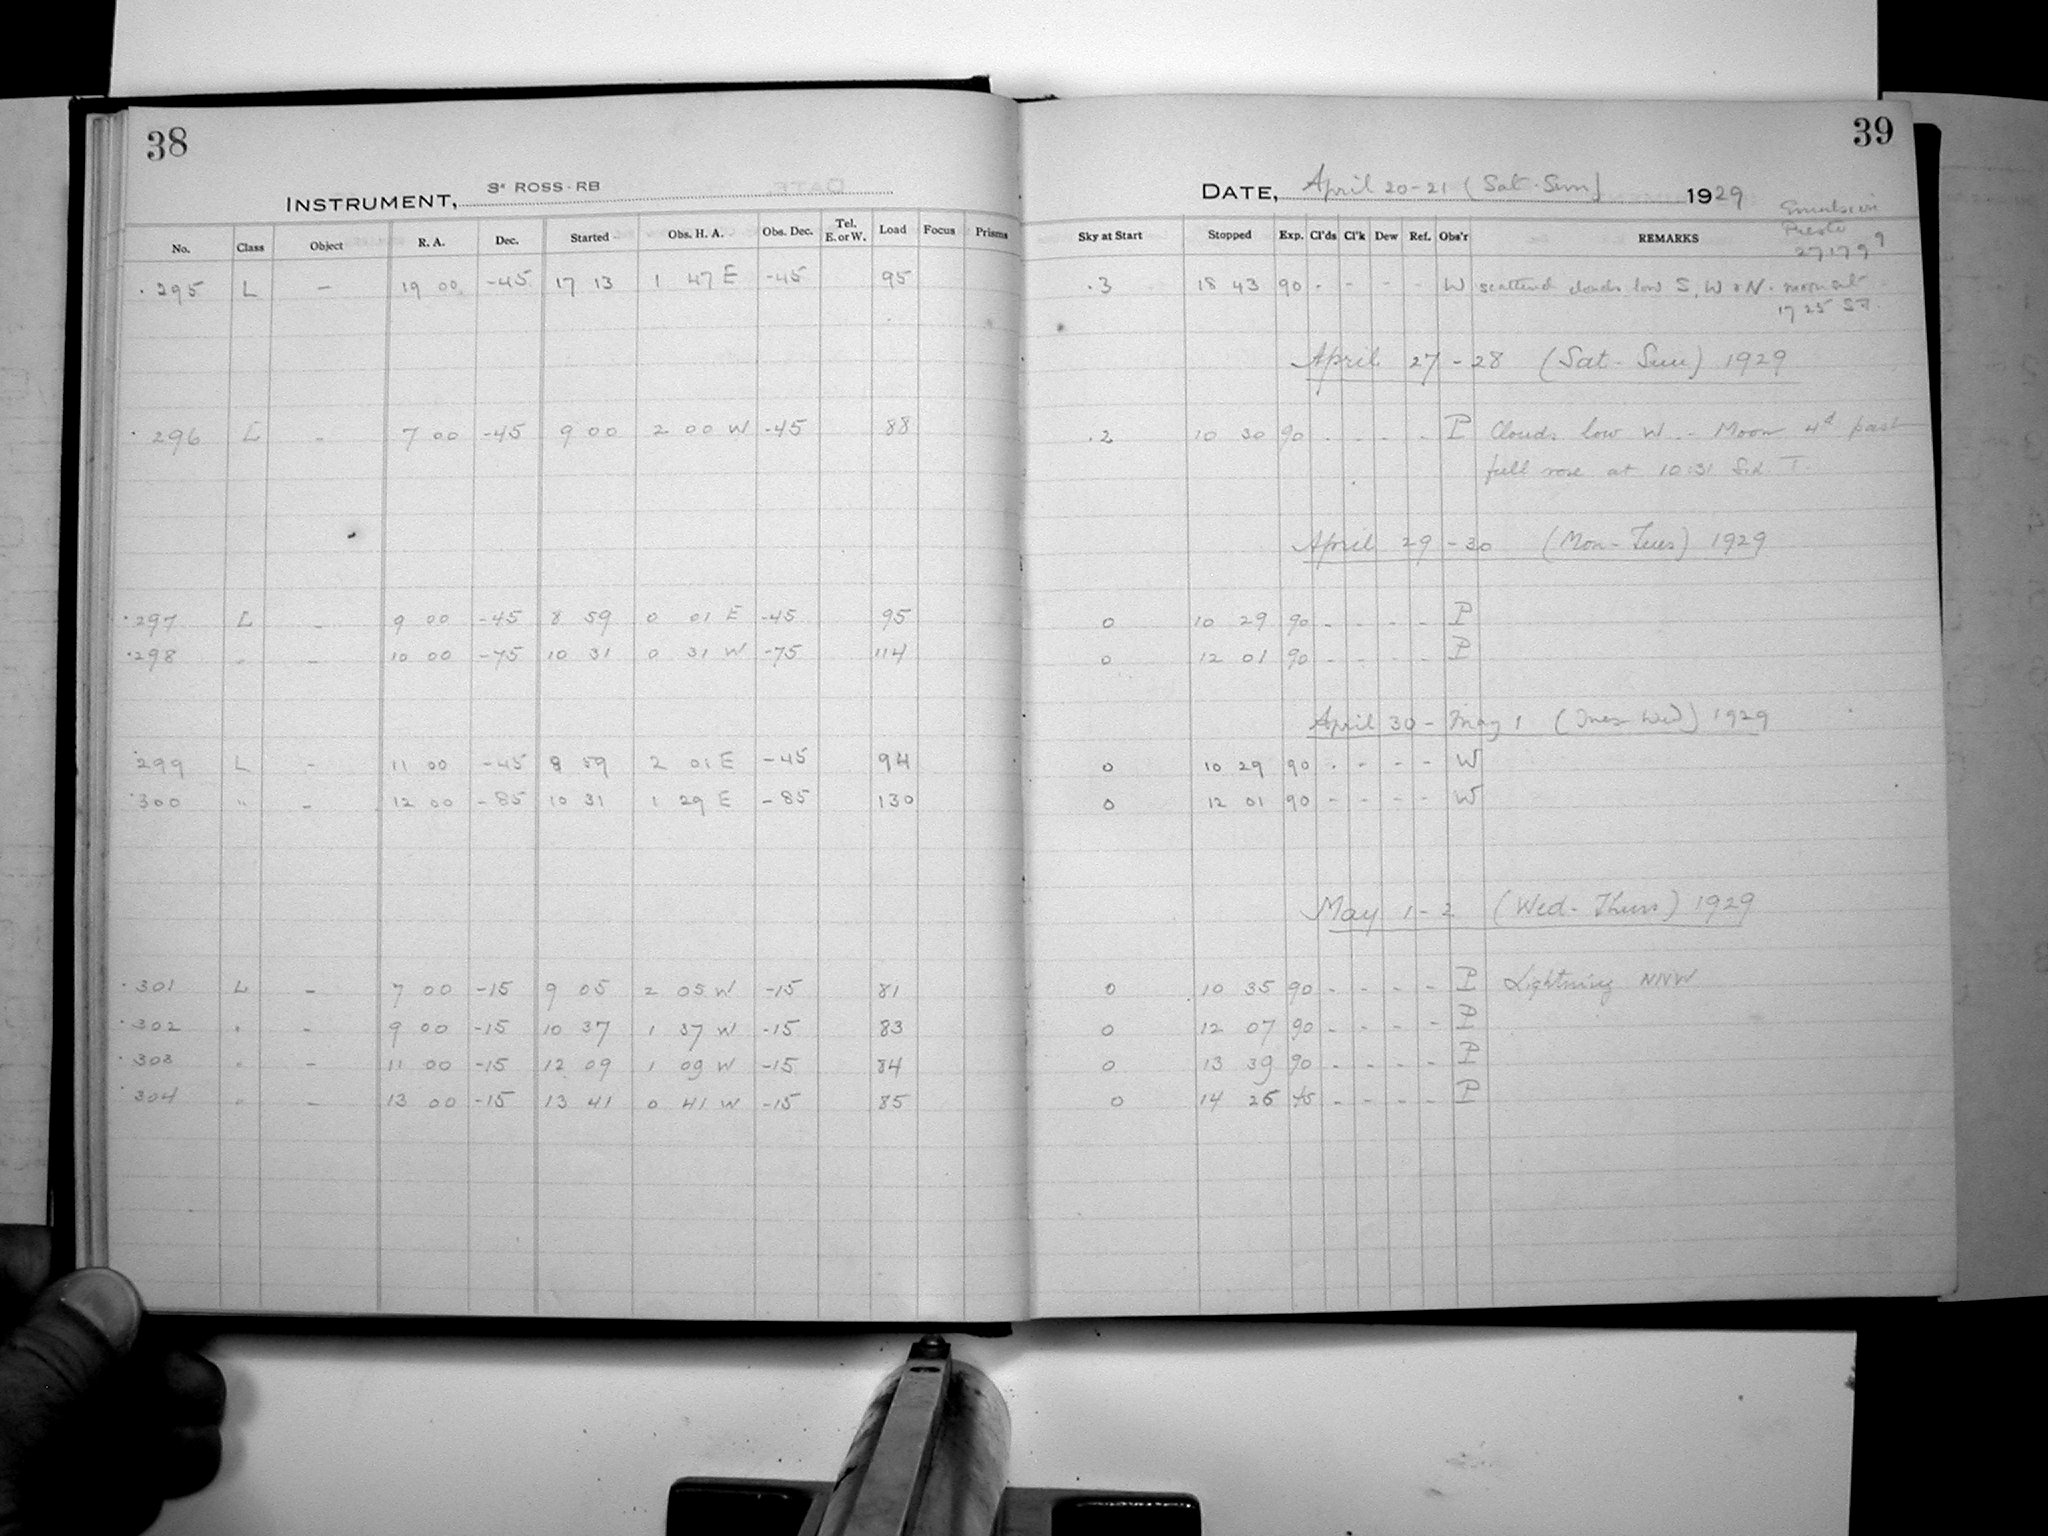 38
INSTRUMENT, 3" ROSS-RB
No. Class Object R. A. Dec. Started Obs. H. A. Obs. Dec. Tel. E. or W. Load Focus Prisms
295 L - 19 00 -45 17 13 1 47 E -45 95
296 L - 7 00 -45 9 00 2 00 W -45 88
297 L - 9 00 -45 8 59 0 01 E -45 95
298 " - 10 00 -75 10 31 0 31 W -75 114
299 L - 11 00 -45 8 59 2 01 E -45 94
300 " - 12 00 -85 10 31 1 29 E -85 130
301 L - 7 00 -15 9 05 2 05 W -15 81
302 " - 9 00 -15 10 37 1 37 W -15 83
303 " - 11 00 -15 12 09 1 09 W -15 84
304 " - 13 00 -15 13 41 0 41 W -15 85
39
DATE, April 20-21 (Sat-Sun) 1929
Emulsion
Presto
27179
Sky at Start Stopped Exp. Cl'ds Cl'k Dew Ref. Obs'r REMARKS
.3 18 43 90 - - - - W scattered clouds low S, W & N. moon at
17 25 ST.
April 27-28 (Sat-Sun) 1929
.2 10 30 90 - - - - P Clouds low W - Moon 4d past
full rose at 10:31 Sid. T.
April 29-30 (Mon-Tues) 1929
0 10 29 90 - - - - P
0 12 01 90 - - - - P
April 30 - May 1 (Tues-Wed) 1929
0 10 29 90 - - - - W
0 12 01 90 - - - - W
May 1-2 (Wed-Thurs) 1929
0 10 35 90 - - - - P Lightning NNW
0 12 07 90 - - - - P
0 13 39 90 - - - - P
0 14 26 45 - - - - P